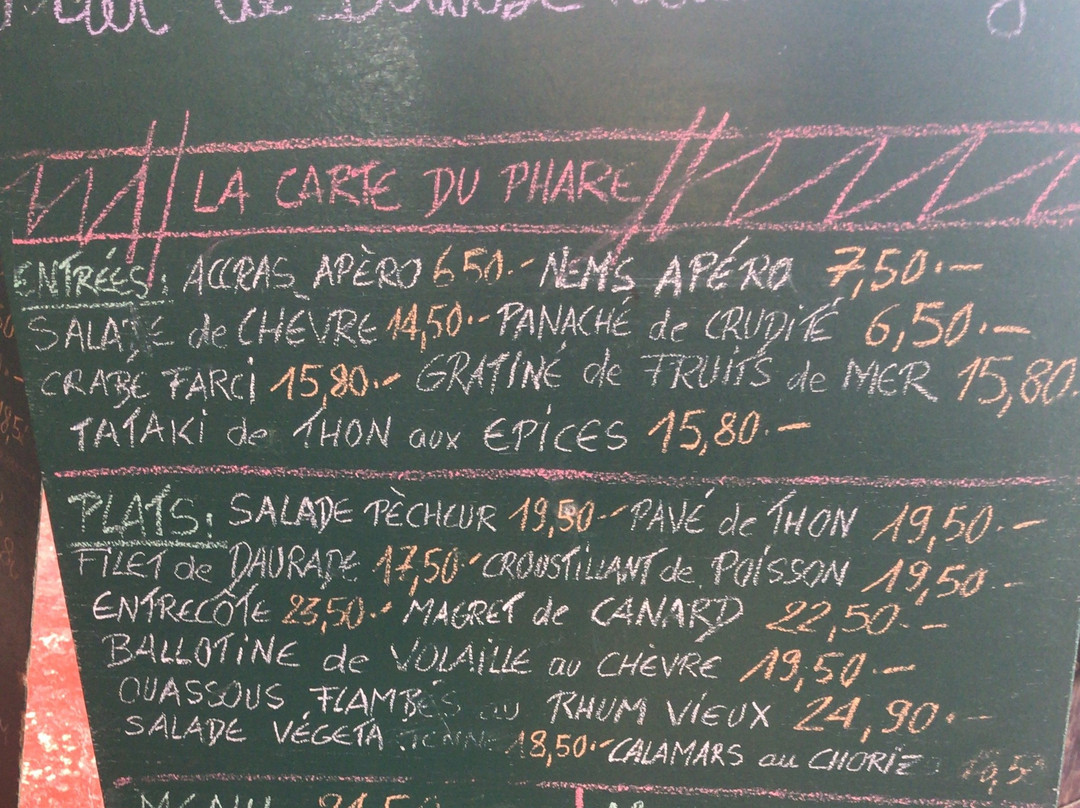 LA CARTE DU PHARE
ENTRÉES: ACCRAS APÈRO 6 50.- NEMS APÉRO 7,50.-
SALADE de CHÈVRE 14,50.- PANACHÉ de CRUDITÉ 6,50.-
CRABE FARCI 15,80.- GRATINÉ de FRUITS de MER 15,80.
TATAKI de THON aux EPICES 15,80.-
PLATS: SALADE PÈCHEUR 19,50.- PAVÉ de THON 19,50.-
FILET de DAURADE 17,50.- CROUSTILLANT de POISSON 19,50.-
ENTRECÔTE 23,50.- MAGRET de CANARD 22,50.-
BALLOTINE de VOLAILLE au CHÈVRE 19,50.-
OUASSOUS FLAMBÉS au RHUM VIEUX 24,90.-
SALADE VÉGETATIENNE 18,50.- CALAMARS au CHORIZ
MENU